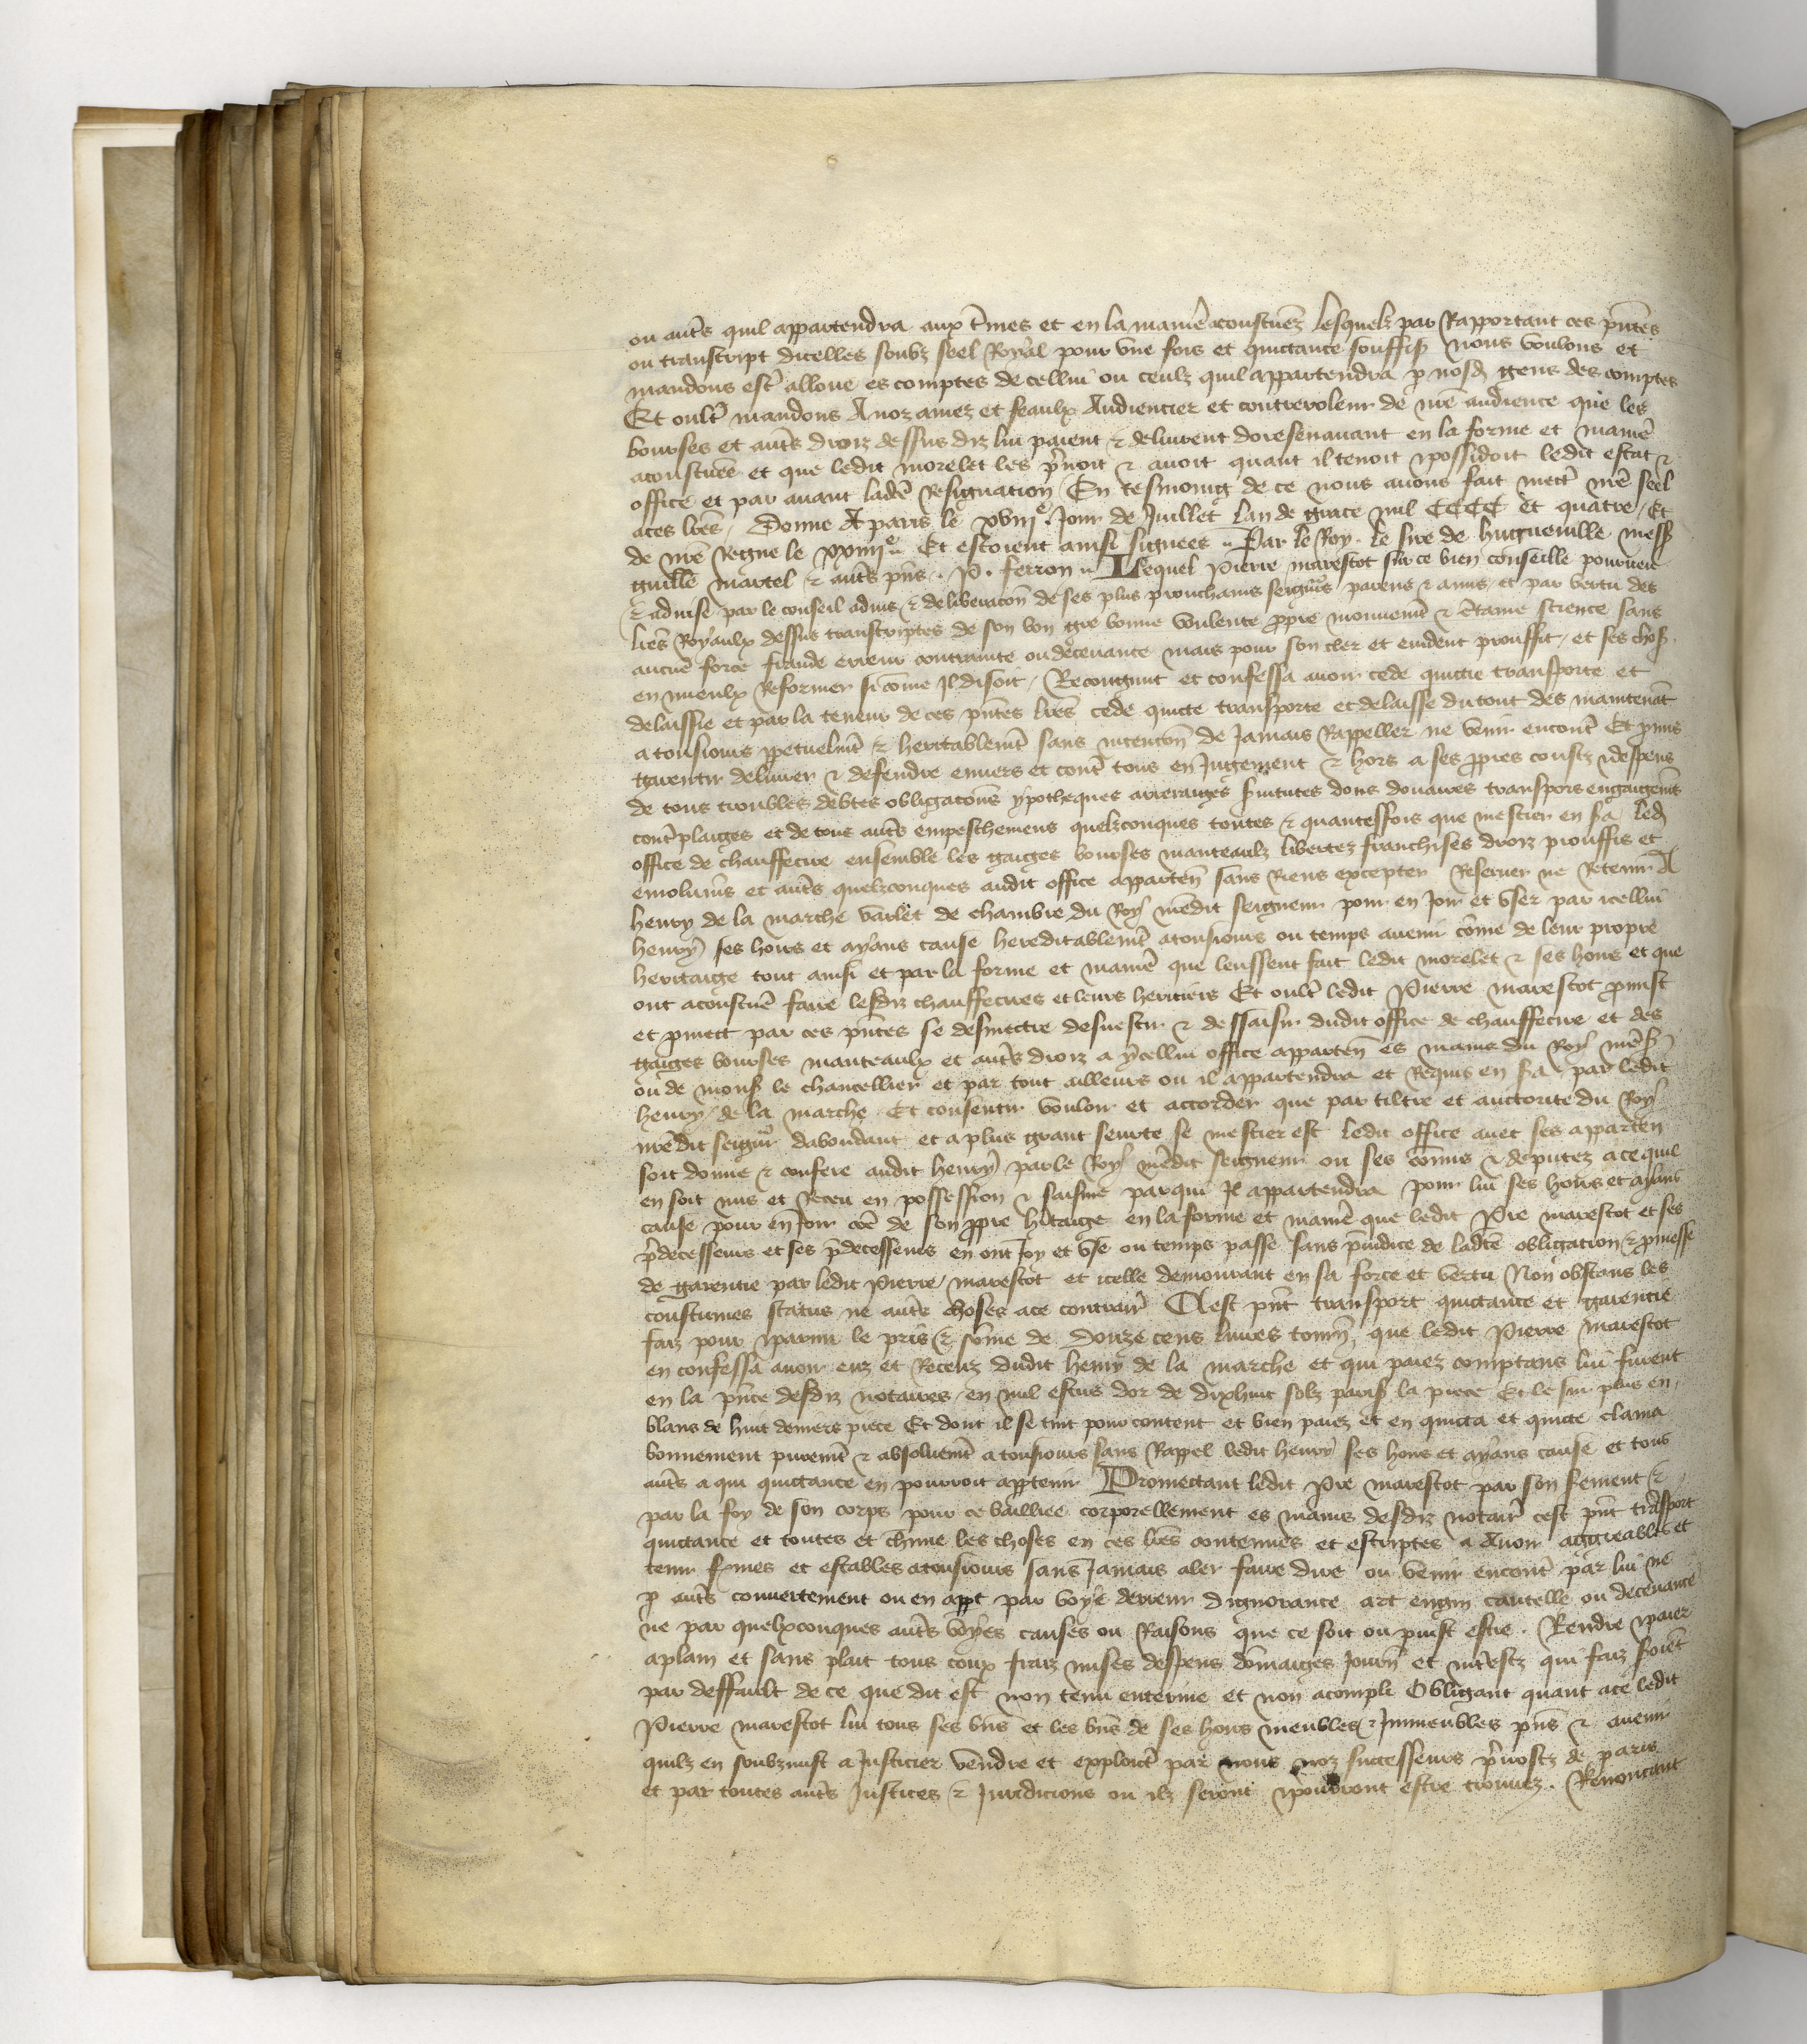 ou autr̃s quil appartendra aux t̃mes et en la maniẽ acoustueẽz lesquelz par Rapportant ces p̃ntes
ou transcript dicelles soubz seel Royal pour vne fois et quictance souffis nous voulons et
mandons est̃r alloue es comptes de cellui ou ceulz quil appartendra p nosd gens des comptes
Et oult̃ mandons A noz amez et feaulx Audiencier et contreroleur de nr̃e audience que les
bourses et aut̃s droiz dessus diz lui paient & deliurent doresenauant en la forme et maniẽ
acoustuẽe et que ledit morelet les p̃noit & auoit quant il tenoit & possidoit ledit estat &
office et par auant ladc̃e Resignation En tesmoing de ce nous auons fait mett̃ nr̃e seel
a ces lr̃es / Donne A paris le xviiie Jour de Juillet lan de grace mil CCCC et quatre / Et
de nr̃e Regne le xxiiiie Et estoient ainsi signees Par le Roy. le sire de hugueuille mess
guill̃e martel & aut̃s p̃ns. P. ferron Lequel Pierre marescot sur ce bien conseille pourueu
& aduise par le conseil aduis & deliberacõn de ses plus prouchains seigñrs parens & amis et par vertu des
lr̃es Royaulx dessus transcriptes de son bon gre bonne voulente propre mouuemt̃ & c̃taine science sans
aucuẽ force fraude erreur contrainte ou deceuance mais pour son cler et euident prouffit / et ses chos
en mieulx Reformer si cõme Jl disoit / Recongnut et confessa auoir cede quictie transporte et
delaissie et par la teneur de ces p̃ntes lr̃es cede quicte transporte et delaisse du tout des maintenãt
a tousiours ppetuelmt̃ & heritablemt̃ sans intencõn de Jamais Rappeller ne venir encont̃ Et p̃mis
garentir deliurer & defendre enuers et cont̃ tous en Jugement & hors a ses ppres coustz & despens
de tous troubles debtes obligacõns ypotheques arrerages s̃uitutes dons douaires transpors engaigemẽs
cont̃plaiges et de tous aut̃s empeschemens quelzconques toutes & quantesfois que mestier en s̃a led
office de chauffecire ensemble les gaiges bourses manteaulz libertez franchises droiz prouffis et
emolumẽs et aut̃s quelzconques audit office apparten̄ sans Riens excepter Reseruer ne Retenir A
henry de la marche varlet de chambre du Roy nr̃edit seigneur pour en Joir et vser par icellui
henry ses hoirs et ayans cause hereditablemt̃ a tousiours ou temps auenir cõme de leur propre
heritaige tout ainsi et par la forme et maniẽ que leussent fait ledit morelet & ses hoirs et que
ont acoustuẽ faire lesdiz chauffecires et leurs heritiers Et oult̃ ledit Pierre marescot p̃mist
et p̃mett par ces p̃ntes se desmettre desuestir & dessaisir dudit office de chauffecire et des
gaiges bourses manteaulx et aut̃s droiz a ycellui office apparten̄ es mains du Roy nr̃e s
ou de mons le chancellier et par tout ailleurs ou il appartendra et Requis en s̃a par ledit
henry de la marche Et consentir vouloir et accorder que par tiltre et auctorite du Roy
nr̃edit seigñr dabondant et a plus grant seurte se mestier est ledit office auec ses apparten
soit donne & confere audit henry par le Roy nr̃edit seigneur ou ses cõmis & deputez a ce quil
en soit mis et Receu en possession & saisine par qui Jl appartendra pour lui ses hoirs et ayans
cause pour en Joir cõe de son ppre h̃itaige en la forme et maniẽ que ledit P̃re marescot et ses
p̃decesseurs et ses p̃decesseurs en ont Joy et vse ou temps passe sans p̃iudice de ladc̃e obligation & p̃messe
de garentie par ledit Pierre marescot et icelle demourant en sa force et vertu Non obstans les
coustumes status ne aut̃s choses a ce contrair̃ Cest p̃nt transport quictance et garentie
faiz pour & parmi le pris & sõme de Douze cens liures tourn̄ que ledit Pierre marescot
en confessa auoir euz et Receuz dudit henry de la marche et qui paiez comptans lui furent
en la p̃nce desdiz notaires en mil escus dor de dixhuit solz paris la piece Et le sur plus en
blans de huit deniers piece Et dont il se tint pour content et bien paiez et en quicta et quicte clama
bonnement puremt̃ & absoluemt̃ a tousiours sans Rappel ledit henry ses hoirs et ayans cause et tous
aut̃s a qui quictance en pourroit apptenir Promectant ledit P̃re marescot par son s̃ement &
par la foy de son corps pour ce bailliee corporellement es mains desdiz notair̃ cest p̃nt tr̃asport
quictance et toutes et ch̃une les choses en ces lr̃es contenues et escriptes a Auoir aggreables et
tenir f̃mes et estables a tousiours sans Jamais aler faire dire ou venir encont̃ par lui ne
p aut̃s couuertement ou en appt par voye derreur dignorance art engin cautelle ou deceuance
ne par quelxconques aut̃s voyes causes ou Raisons que ce soit ou puist estre. Rendre & paier
a plain et sans plait tous coux fraiz mises despens dõmaiges Journ̄ et int̃estz qui faiz s̃oiẽt
par deffault de ce que dit est non tenu enterine et non acompli Obligant quant a ce ledit
Pierre marescot lui tous ses bñs et les bñs de ses hoirs meubles & Jmmeubles p̃ns & auenir
quilz en soubzmist a Justicier vendre et exploict̃ par nous noz successeurs p̃uostz de paris
et par toutes aut̃s Justices & Juridicions ou ilz seront & pourront estre trouuez. Renoncant